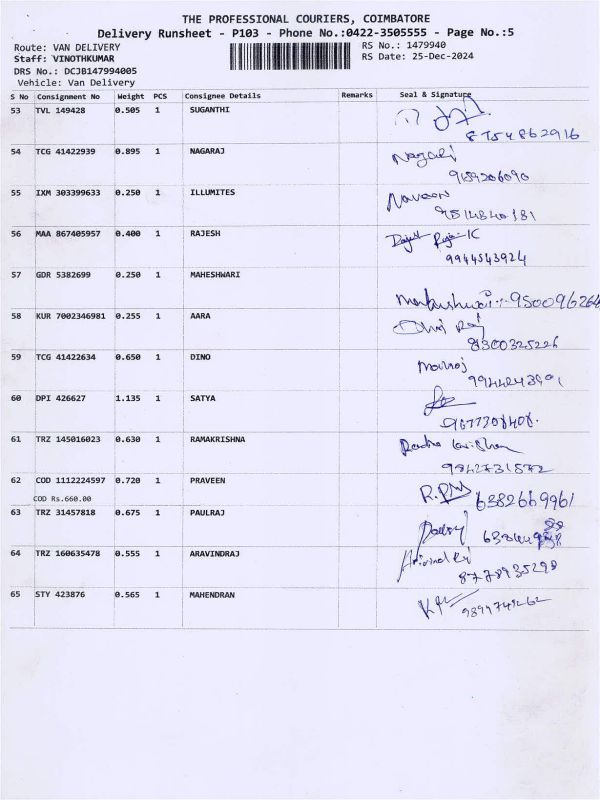 THE PROFESSIONAL COURIERS, COIMBATORE
Delivery Runsheet - P103 - Phone No.:0422-3505555 - Page No.:5
Route: VAN DELIVERY RS No.: 1479940
Staff: VINOTHKUMAR RS Date: 25-Dec-2024
DRS No.: DCJB147994005
Vehicle: Van Delivery
S No Consignment No Weight PCS Consignee Details Remarks Seal & Signature
53 TVL 149428 0.505 1 SUGANTHI
8754862916
54 TCG 41422939 0.895 1 NAGARAJ Nagaraj
9659206090
55 IXM 303399633 0.250 1 ILLUMITES Naveen
9514840181
56 MAA 867405957 0.400 1 RAJESH
9944543924
57 GDR 5382699 0.250 1 MAHESHWARI
58 KUR 7002346981 0.255 1 AARA
8300325226
59 TCG 41422634 0.650 1 DINO Manoj
60 DPI 426627 1.135 1 SATYA
61 TRZ 145016023 0.630 1 RAMAKRISHNA
9842731572
62 COD 1112224597 0.720 1 PRAVEEN 6382669961
COD Rs.660.00
63 TRZ 31457818 0.675 1 PAULRAJ
64 TRZ 160635478 0.555 1 ARAVINDRAJ
8778935298
65 STY 423876 0.565 1 MAHENDRAN